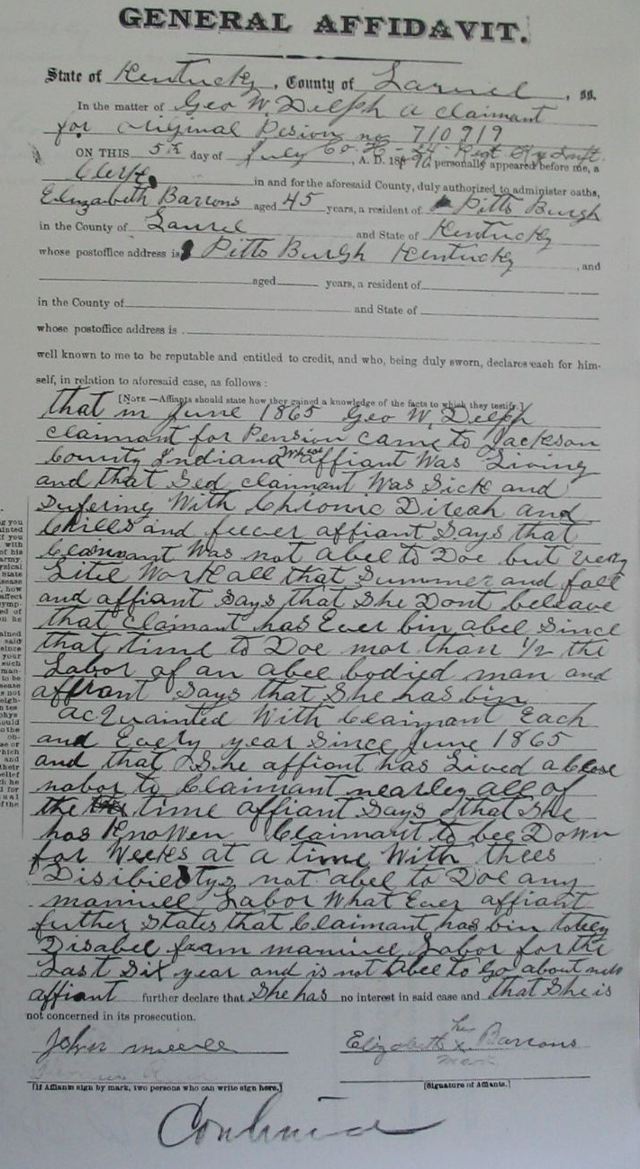 GENERAL AFFIDAVIT.
State of Kentucky, County of Laurel, ss.
In the matter of Geo W. Delph a claimant
for original Pesion no 710919
Co H - 24 Regt Ky Inft.
ON THIS 5th day of July, A. D. 1890 personally appeared before me, a
Clerk in and for the aforesaid County, duly authorized to administer oaths,
Elizabeth Barrons aged 45 years, a resident of Pitts Burgh
in the County of Laurel and State of Kentucky
whose postoffice address is Pitts Burgh Kentucky, and
aged years, a resident of
in the County of and State of
whose postoffice address is
well known to me to be reputable and entitled to credit, and who, being duly sworn, declares each for him-
self, in relation to aforesaid case, as follows:
[NOTE—Affiants should state how they gained a knowledge of the facts to which they testify.]
that in June 1865 Geo W. Delph
claimant for Pension came to Jackson
County Indiana Whear affiant Was Living
and that Sed claimant Was Sick and
Sufering With Chronic Direah and
Chills and feever affiant Says that
Claimant Was not abel to Doe but very
Litel Work all that Summer and fall
and affiant Says that She Dont beleave
that Claimant has Ever bin abel Since
that time to Doe mor than 1/2 the
Labor of an abel bodied man and
affiant Says that She has bin
acquainted With Claimant Each
and Every year Since June 1865
and that She affiant has Lived a Close
nabor to Claimant nearley all of
the time affiant Says that She
has Knowen Claimant to bee Down
for Weeks at a time With thees
Disibielitys not abel to Doe any
manuel Labor What Ever affiant
further States that Claimant has bin totely
Disabel from manuel Labor for the
Last Six year and is not abel to Go about
affiant further declare that She has no interest in said case and that She is
not concerned in its prosecution.
John
Elizabeth her x mark Barrons
[If Affiants sign by mark, two persons who can write sign here.]
[Signature of Affiants.]